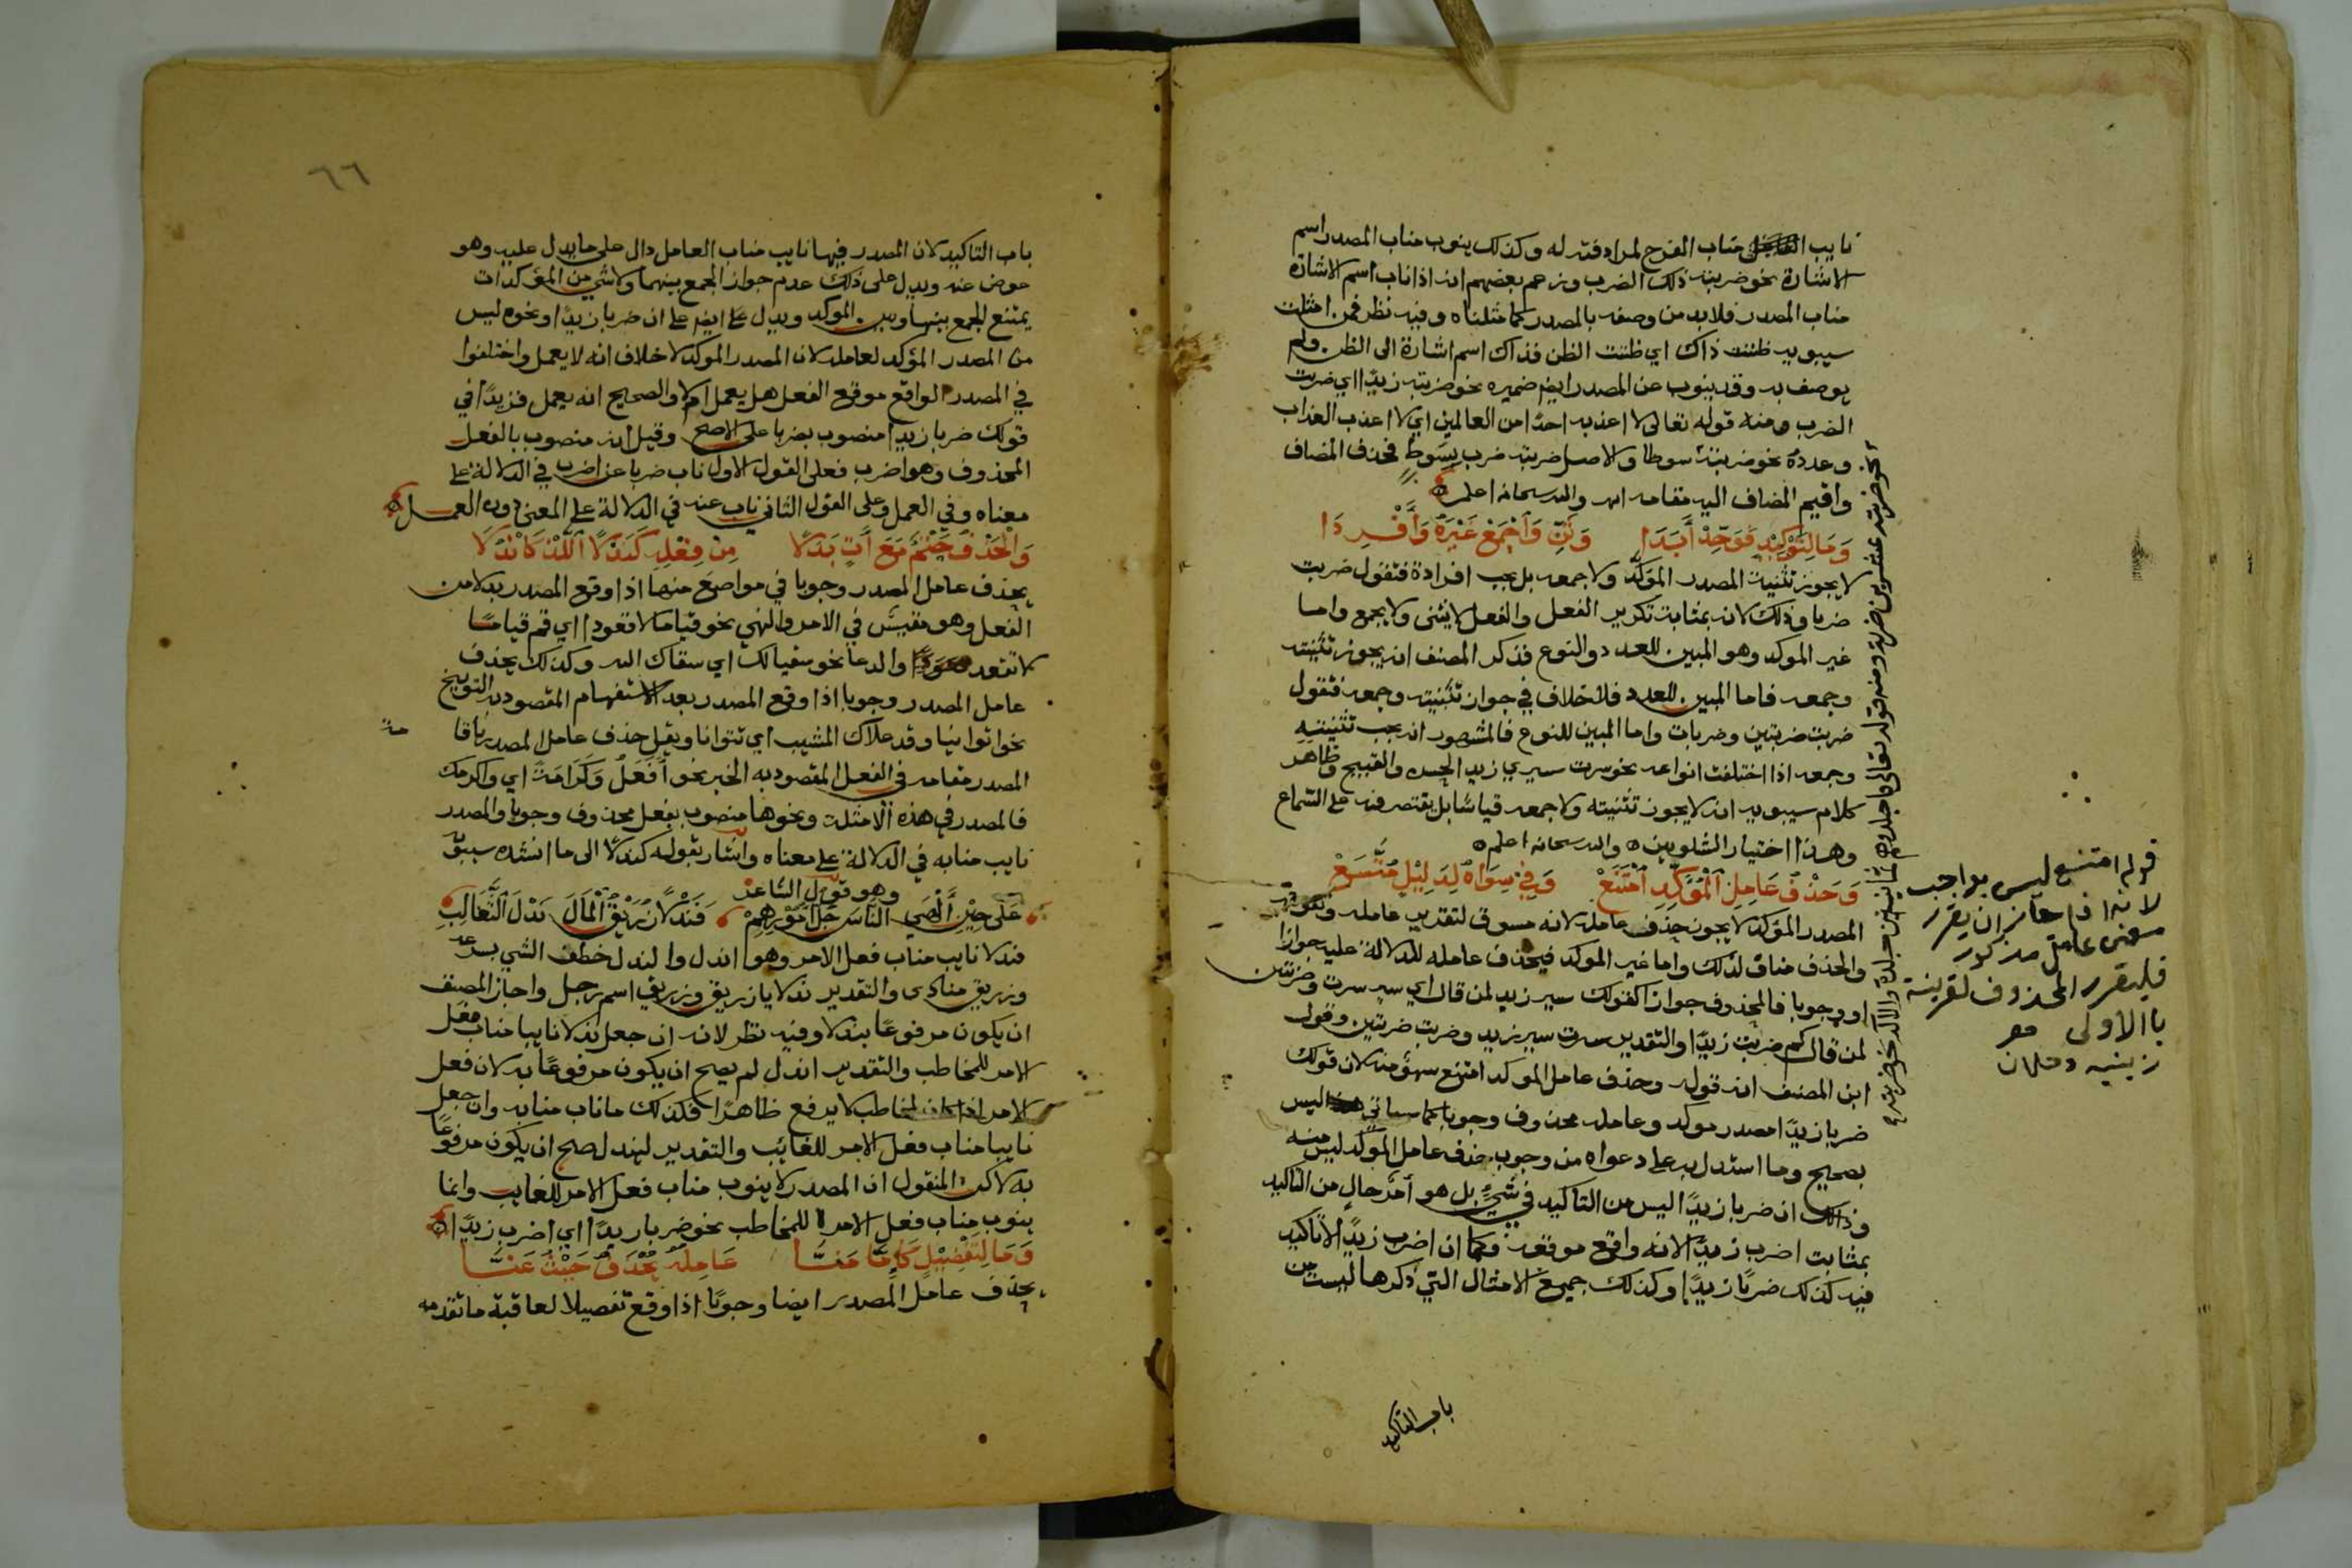 نايب مناب الفرح لمرادفته له وكذلك ينوب مناب المصدر اسم
الاشارة نحو ضربته ذلك الضرب وزعم بعضهم انه اذا ناب اسم الاشارة
مناب المصدر فلا بد من وصفه بالمصدر كما مثلناه وفيه نظر فمن امثلة
سيبويه ظننت ذاك اي ظننت الظن فذاك اسم اشارة الى الظن ولم
يوصف به وقد ينوب عن المصدر ايضا ضميره نحو ضربته زيدا اي ضربت
الضرب ومنه قوله تعالى لا اعذبه احدا من العالمين اي لا اعذب العذاب
وعدده نحو ضربته سوطا والاصل ضربته ضرب بسوط فحذف المضاف
واقيم المضاف اليه مقامه والله سبحانه اعلم
وَمَا لِتَوْكِيْدٍ فَوَحِّدْ أَبَدَا وَثَنِّ وَاجْمَعْ غَيْرَهُ وَأَفْرِدَا
لا يجوز تثنية المصدر المؤكد ولا جمعه بل يجب افراده فتقول ضربت
ضربا وذلك لانه بمثابة تكرير الفعل والفعل لا يثنى ولا يجمع واما
غير الموكد وهو المبين للعدد والنوع فذكر المصنف انه يجوز تثنيته
وجمعه فاما المبين للعدد فلا خلاف في جواز تثنيته وجمعه فتقول
ضربت ضربتين وضربات واما المبين للنوع فالمشهور انه يجب تثنيته
وجمعه اذا اختلفت انواعه نحو سرت سيري زيد الحسن والقبيح وظاهر
كلام سيبويه انه لا يجوز تثنيته ولا جمعه قياسا بل يقتصر فيه على السماع
وهذا اختيار الشلوبين والله سبحانه اعلم
وَحَذْفُ عَامِلِ الْمُؤَكِّدِ امْتَنَعْ وَفِي سِوَاهُ لِدَلِيْلٍ مُتَّسَعْ
المصدر المؤكد لا يجوز حذف عامله لانه مسوق لتقدير عامله وتقويته
والحذف مناف لذلك واما غير الموكد فيحذف عامله للدلالة عليه جوازا
او وجوبا فالمحذوف جوازا كقولك سير زيد لمن قال اي سير سرت وضربتين
لمن قال كم ضربت زيدا والتقدير سرت سير زيد وضربت ضربتين وقول
ابن المصنف ان قوله وحذف عامل الموكد امتنع سهو منه لان قولك
ضربا زيدا مصدر موكد وعامله محذوف وجوبا كما سياتي ليس
بصحيح وما استدل به على دعواه من وجوب حذف عامل الموكد ليس منه
وذلك ان ضربا زيدا ليس من التاكيد في شيء بل هو امر خال من التاكيد
بمثابت اضرب زيدا لانه واقع موقعه فكما ان اضرب زيدا لا تاكيد
فيه كذلك ضربا زيدا وكذلك جميع الامثال التي ذكرها ليست من
باب التاكيد
نحو ضربته عشرين ضربة ومنه قوله تعالى فاجلدوهم ثمانين جلدة والالة نحو ضربته
قوله امتنع ليس بواجب
لانه اذا جاز ان يقرر
معنى عامل مذكور
فليقرر المحذوف لقرينة
باالاولى
زينيه دحلان
٦٦
باب التاكيد لان المصدر فيها نايب مناب العامل دال على ما يدل عليه وهو
عوض عنه ويدل على ذلك عدم جواز الجمع بينهما ولا شي من المؤكدات
يمتنع الجمع بينها وبين الموكد ويدل على ايضا على ان ضربا زيدا ونحوه ليس
من المصدر المؤكد لعامله لان المصدر الموكد لا خلاف انه لا يعمل واختلفوا
في المصدر الواقع موقع الفعل هل يعمل ام لا والصحيح انه يعمل فزيدا في
قولك ضربا زيدا منصوب بضربا على الاصح وقيل انه منصوب بالفعل
المحذوف وهو اضرب فعلى القول الاول ناب ضربا عن اضرب في الدلالة على
معناه وفي العمل وعلى القول الثاني ناب عنه في الدلالة على المعنى دون العمل
وَالْحَذْفُ حَتْمٌ مَعَ آتٍ بَدَلَا مِنْ فِعْلِهِ كَنَدْلًا اللَّذْ كَانْدُلَا
يحذف عامل المصدر وجوبا في مواضع منها اذا وقع المصدر بدلا من
الفعل وهو مقيس في الامر والنهي نحو قياما لا قعودا اي قم قياما
لا تقعد قعودا والدعا نحو سقيا لك اي سقاك الله وكذلك يحذف
عامل المصدر وجوبا اذا وقع المصدر بعد الاستفهام المقصود به التوبيخ
نحو اتوانيا وقد علاك المشيب اي تتوانا ويقل حذف عامل المصدر
المصدر مقامه في الفعل المقصود به الخبر نحو أَفْعَلُ وَكَرَامَةً اي واكرمك
فالمصدر في هذه الامثلة ونحوها منصوب بفعل محذوف وجوبا والمصدر
نايب منابه في الدلالة على معناه واشار بقوله كندلا الى ما انشده سيبويه
وهو قول الشاعر
عَلَى حِيْنِ أَلْهَى النَّاسَ جُلُّ أُمُوْرِهِمْ فَنَدْلًا زُرَيْقُ الْمَالَ نَدْلَ الثَّعَالِبِ
فندلا نايب مناب فعل الامر وهو اندل والندل خطف الشي بسرعة
وزريق منادى والتقدير ندلا يا زريق وزريق اسم رجل واجاز المصنف
ان يكون مرفوعا بندلا وفيه نظر لانه ان جعل ندلا نايبا مناب فعل
الامر للمخاطب والتقدير اندل لم يصح ان يكون مرفوعا به لان فعل
الامر اذا كان لمخاطب لا يرفع ظاهرا فكذلك ما ناب منابه وان جعل
نايبا مناب فعل الامر للغائب والتقدير ليندل صح ان يكون مرفوعا
به لاكن المنقول ان المصدر لا ينوب مناب فعل الامر للغايب وانما
ينوب مناب فعل الامر للمخاطب نحو ضربا زيدا اي اضرب زيدا
وَمَا لِتَفْصِيْلٍ كَإِمَّا مَنَّا عَامِلُهُ يُحْذَفُ حَيْثُ عَنَّا
يحذف عامل المصدر ايضا وجوبا اذا وقع تفصيلا لعاقبة ما تقدمه